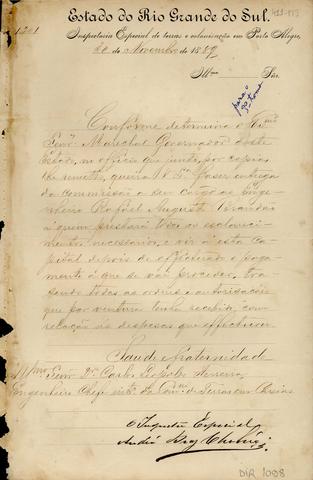 Estado do Rio Grande do Sul.
Inspectoria Especial de terras e colonisação em Porto Alegre,
de Novembro de 1889
Illmo Snr.
para o
Conforme determina o Exmo
Senr Marechal Governador deste
Estado, no officio que junto, por copia,
lhe remetto, queira V. Sa fazer entrega
da commissão a seu cargo ao Enge-
nheiro Rafael Augusto Brandão
a quem prestará todos os esclareci-
mentos necessarios, e vir á esta Ca-
pital depois de effectuado o paga-
mento á que se vai proceder, tra-
zendo todas as ordens e autorisações
que por ventura tenha recebido, com
relação ás despezas que effectuou.
Saude e fraternidade
Illmo Senr Dr Carlos
Engenheiro Chefe de Terras em
O Inspector Especial
André
DIR 1008